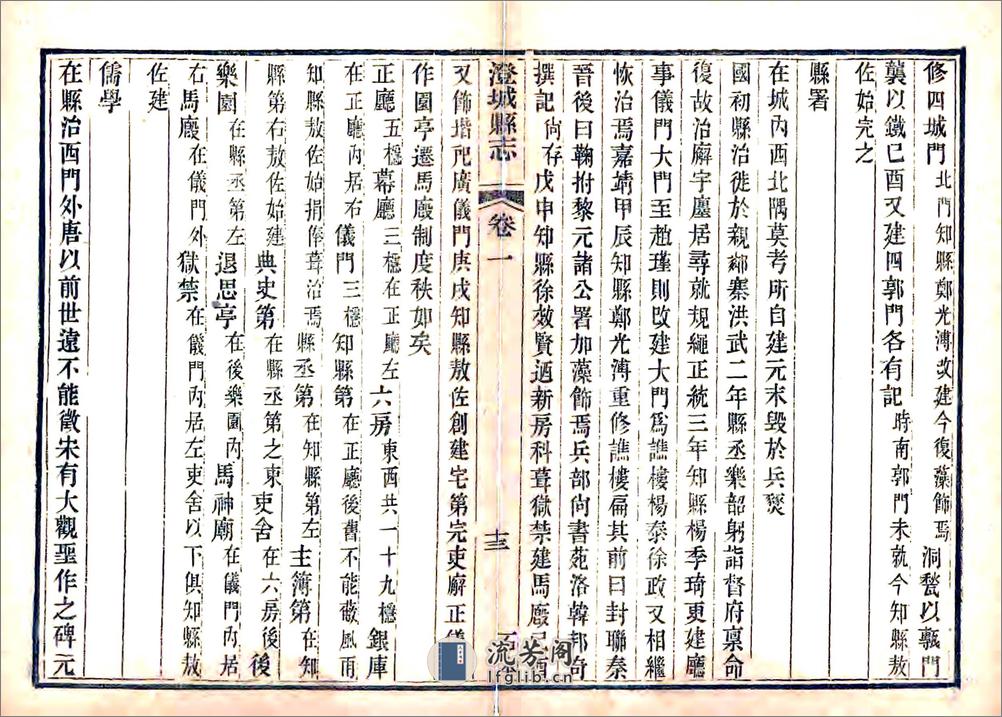 修四城門北門知縣鄭光溥改建今復藻飾焉洞甃以甎門
襲以鐵己酉又建四郭門各有記時南郭門未就今知縣敖
佐始完之
縣署
在城內西北隅莫考所自建元末毀於兵燹
國初縣治徙於親鄰寨洪武二年縣丞樂韶躬詣督府稟命
復故治廨宇廛居尋就規繩正統三年知縣楊季琦更建廳
事儀門大門至趙瑾則改建大門爲譙樓楊泰徐政又相繼
恢治焉嘉靖甲辰知縣鄭光溥重修譙樓扁其前曰封聯秦
晉後曰鞠拊黎元諸公署加藻飾焉兵部尙書苑洛韓邦奇
撰記尙存戊申知縣徐效賢迺新房科葺獄禁建馬廄
又飾堦戺廣儀門庚戌知縣敖佐創建宅第完吏廨正
作園亭遷馬廄制度秩如矣
正廳五檼幕廳三檼在正廳左六房東西共一十九檼銀庫
在正廳內居右儀門三檼知縣第在正廳後舊不能蔽風雨
知縣敖佐始捐俸葺治焉縣丞第在知縣第左主簿第在知
縣第右敖佐始建典史第在縣丞第之東吏舍在六房後後
樂園在縣丞第左退思亭在後樂園內馬神廟在儀門內居
右馬廄在儀門外獄禁在儀門內居左吏舍以下俱知縣敖
佐建
儒學
在縣治西門外唐以前世遠不能徵宋有大觀聖作之碑元
澄城縣志
卷一
十三
流芳阁
lfglib.cn